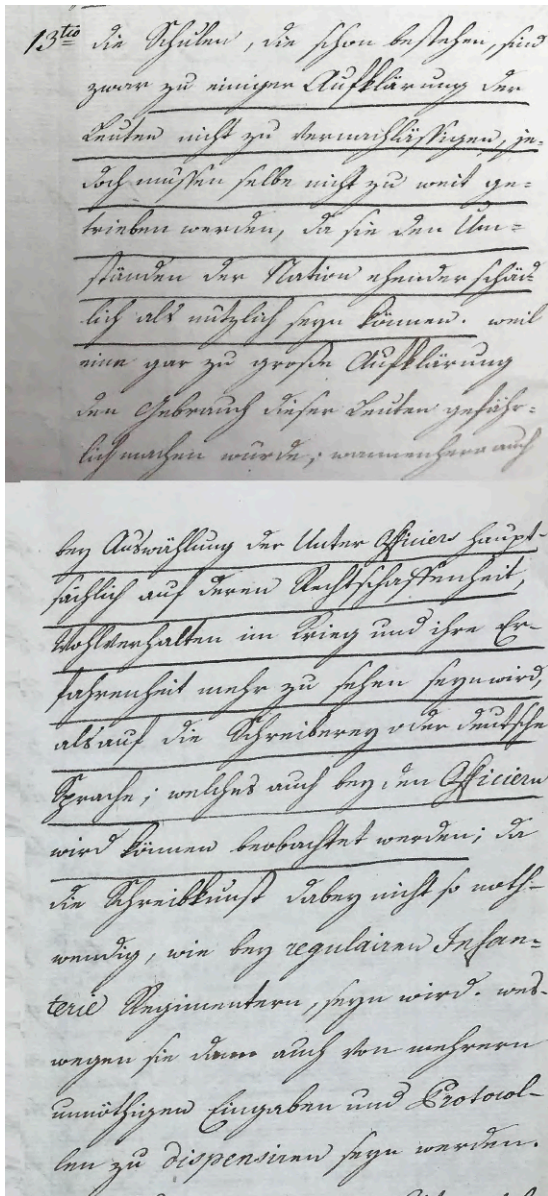 13tio die Schulen, die schon bestehen, sind
zwar zu einiger Aufklärung der
Leuten nicht zu vernachlässigen, je-
doch müssen selbe nicht zu weit ge-
trieben werden, da sie den Um-
ständen der Nation ehender schäd-
lich als nutzlich seyn können. weil
eine gar zu große Aufklärung
den Gebrauch dieser Leuten gefähr-
lich machen wurde; wannenhero auch
bey Auswählung der Unter Officiers haupt-
sächlich auf deren Rechtschaffenheit,
Wohlverhalten im Krieg und ihre Er-
fahrenheit mehr zu sehen seyn wird,
als auf die Schreiberey oder deutsche
Sprache; welches auch bey den Officiern
wird können beobachtet werden; da
die Schreibkunst dabey nicht so noth-
wendig, wie bey regulairen Infan-
terie Regimentern, seyn wird. wes-
wegen sie dann auch von mehrern
unnöthigen Eingaben und Protocol-
len zu dispensiren seyn werden.